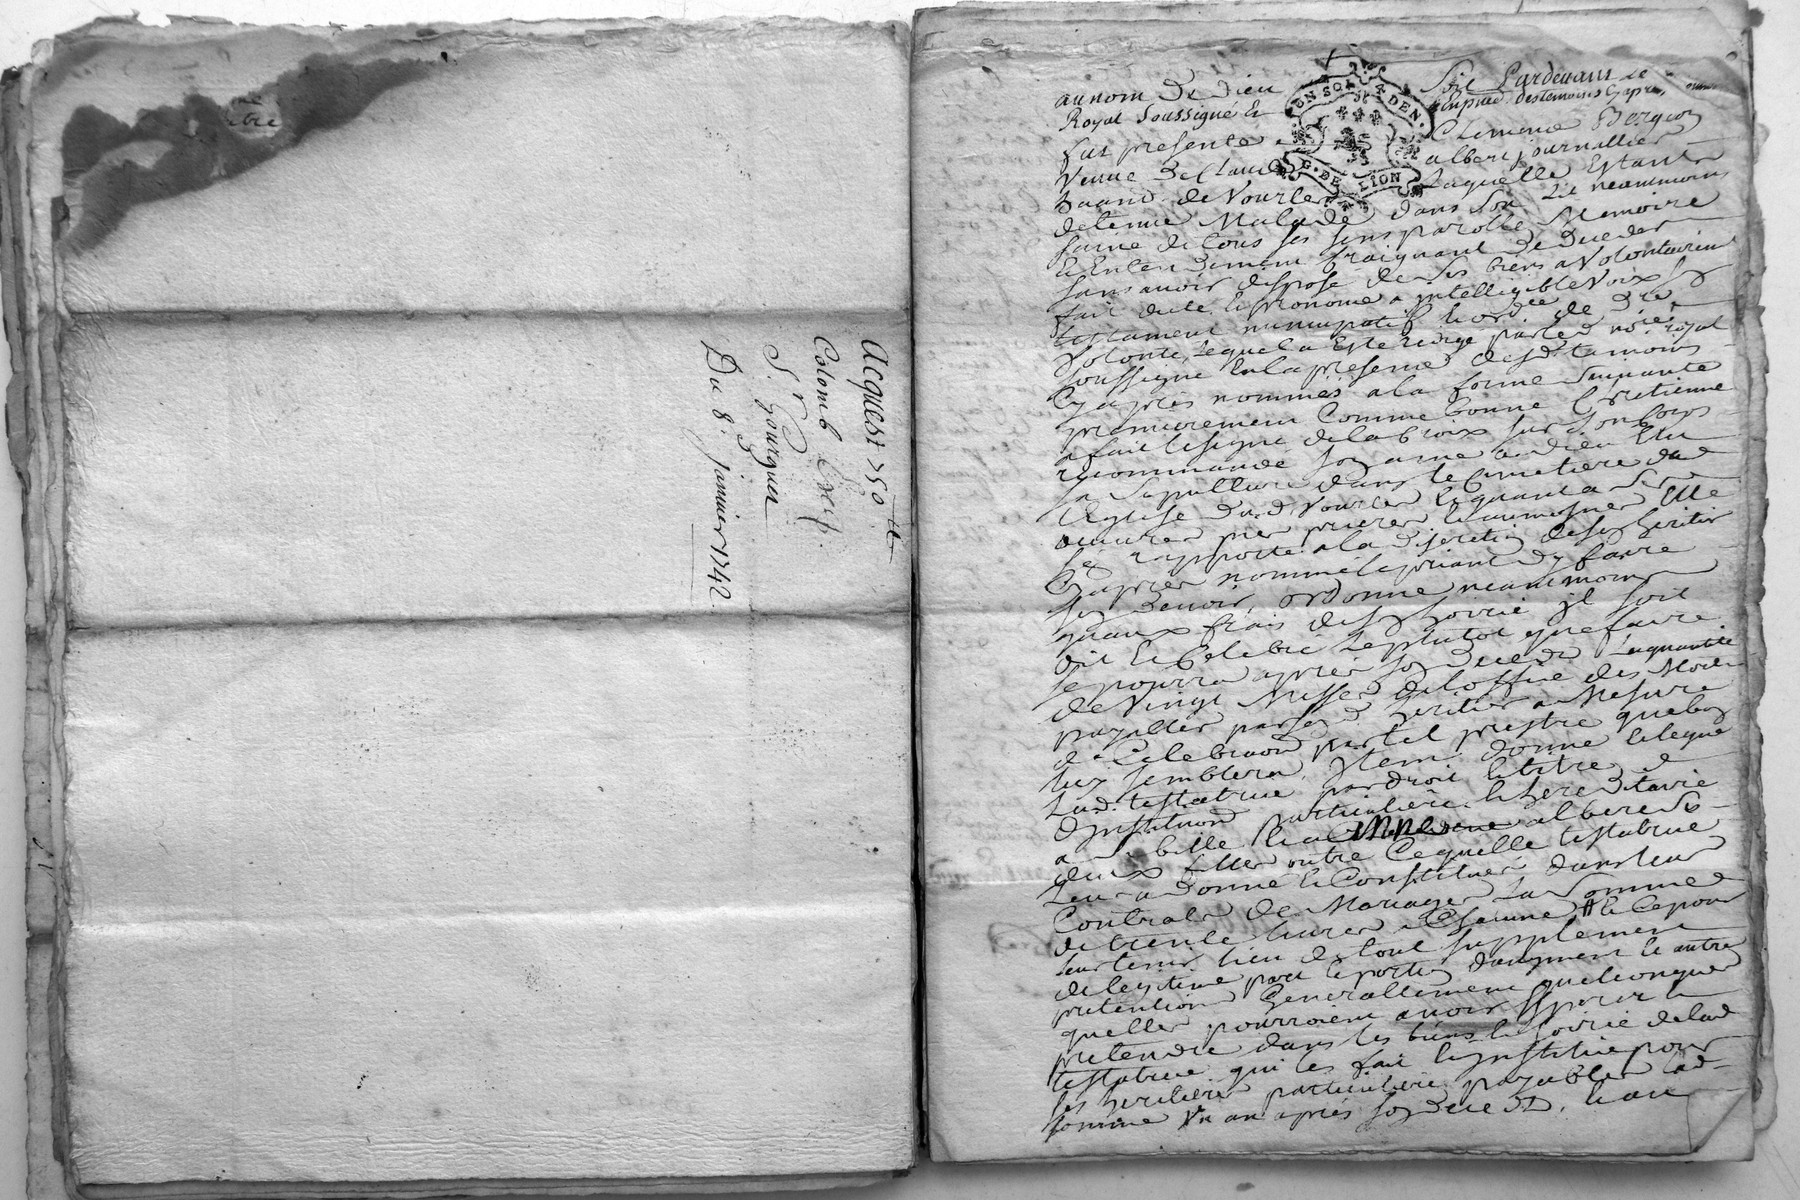 Acquest 750 tt
Colomb Const.
S.r Gourguer
Du 8e janvier 1742
UN SOL 4 DEN.
G. DE LION
au nom de Dieu Soit Pardevant le
Royal Soussigné Et En pnce des temoins Cy apres
fut presente Clemence
Veuve de Claude albert journallier
de Vourles Laquelle Estant
detenue Malade dans Son Lit neanmoins
saine de tous ses sens parolle Memoire
Et Entendement Craignant de deceder
sans avoir disposé de ses biens a Volontairement
fait dicté Et prononcé a intelligible Voix
testament nuncupatif
Volonté, Lequel a Esté redigé par led no.re royal
soussigné En la presence desd. tamoins
Cy après nommés a la forme Suivante
premierement Comme bonne Cretienne
a fait le signe de la Croix sur son Corps
recommandé son ame a dieu Elu
sa sepulture dans le Cimetière de
l'Eglise dud. Vourles Et quant a ses
œuvres pies prieres Et aumosnes Elle
s'en rapporte a la discretion de son heritier
Cy après nommé le priant d'y faire
son devoir, ordonne neanmoins
qu'aux frais de son hoirie jl soit
dit Et Celebré Le plutot que faire
se pourra après son deced La quantité
de Vingt Messes de l'office des Morts
payables par sond heritier a Mesure
de Celebraon par tel prestre que bon
luy semblera, Jtem donne Et legue
Lad. testatrice par droit Et titre
d'jnstitution particulière Et hereditaire
a albert ses
deux filles outre Ce quelle testatrice
Leur a donné Et Constitué dans leur
Contrats de Mariages La Somme
de trente livres a Chacune Et Ce pour
leur tenir lieu de tout supplement
de legitime part Et portion d'augment Et autres
pretentions Generallement quelconques
quelles pourroient avoir Esperer Et
pretendre dans les biens Et hoirie de lad
testatrice qui les fait Et jnstitue pour
ses heritières particulières payables lad
somme Un an après son deced,